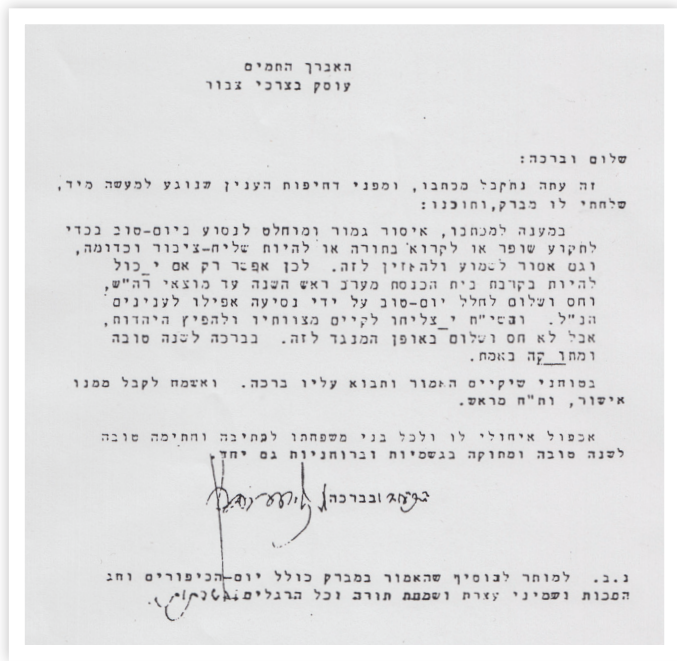 האברך התמים
עוסק בצרכי צבור
שלום וברכה:
זה עתה נתקבל מכתבו, ומפני דחיפות הענין שנוגע למעשה מיד,
שלחתי לו מברק,ותוכנו:
במענה למכתבו, איסור גמור ומוחלט לנסוע ביום-טוב בכדי
לתקוע שופר או לקרוא בתורה או להיות שליח-ציבור וכדומה,
וגם אסור לשמוע ולהאזין לזה. לכן אפשר רק אם י_כול
להיות בקרבת בית הכנסת מערב ראש השנה עד מוצאי רה"ש,
וחס ושלום לחלל יום-טוב על ידי נסיעה אפילו לענינים
הנ"ל. ובשי"ח י_צליחו לקיים מצוותיו ולהפיץ היהדות,
אבל לא חס ושלום באופן המנגד לזה. בברכה לשנה טובה
ומתו_קה באמת.
בטוחני שיקיים האמור ותבוא עליו ברכה. ואשמח לקבל ממנו
אישור, ות"ח מראש.
אכפול איחולי לו ולכל בני משפחתו לכתיבה וחתימה טובה
לשנה טובה ומתוקה בגשמיות וברוחניות גם יחד.
ובברכה
נ.ב. למותר להוסיף שהאמור במברק כולל יום-הכיפורים וחג
הסכות ושמיני עצרת ושמחת תורה וכל הרגלים.